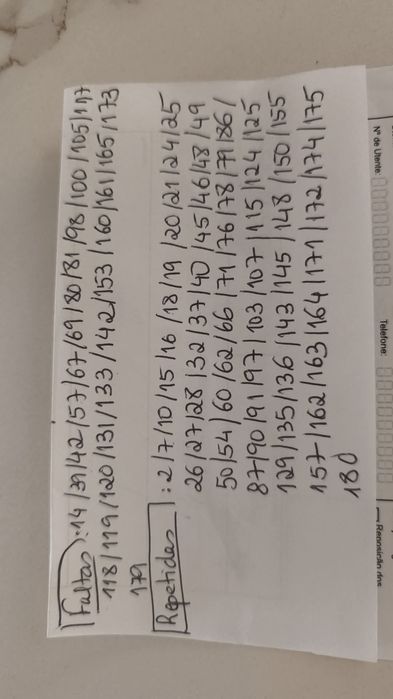 Faltas: 14/39/42/57/67/69/80/81/98/100/105/117
118/119/120/131/133/142/153/160/161/165/173
179
Repetidas: 2/7/10/15/16/18/19/20/21/24/25
26/27/28/32/37/40/45/46/48/49
50/54/60/62/66/71/76/78/79/86/
87/90/91/97/103/107/115/124/125
129/135/136/143/145/148/150/155
157/162/163/164/171/172/174/175
180
Nº de Utente:
Telefone: